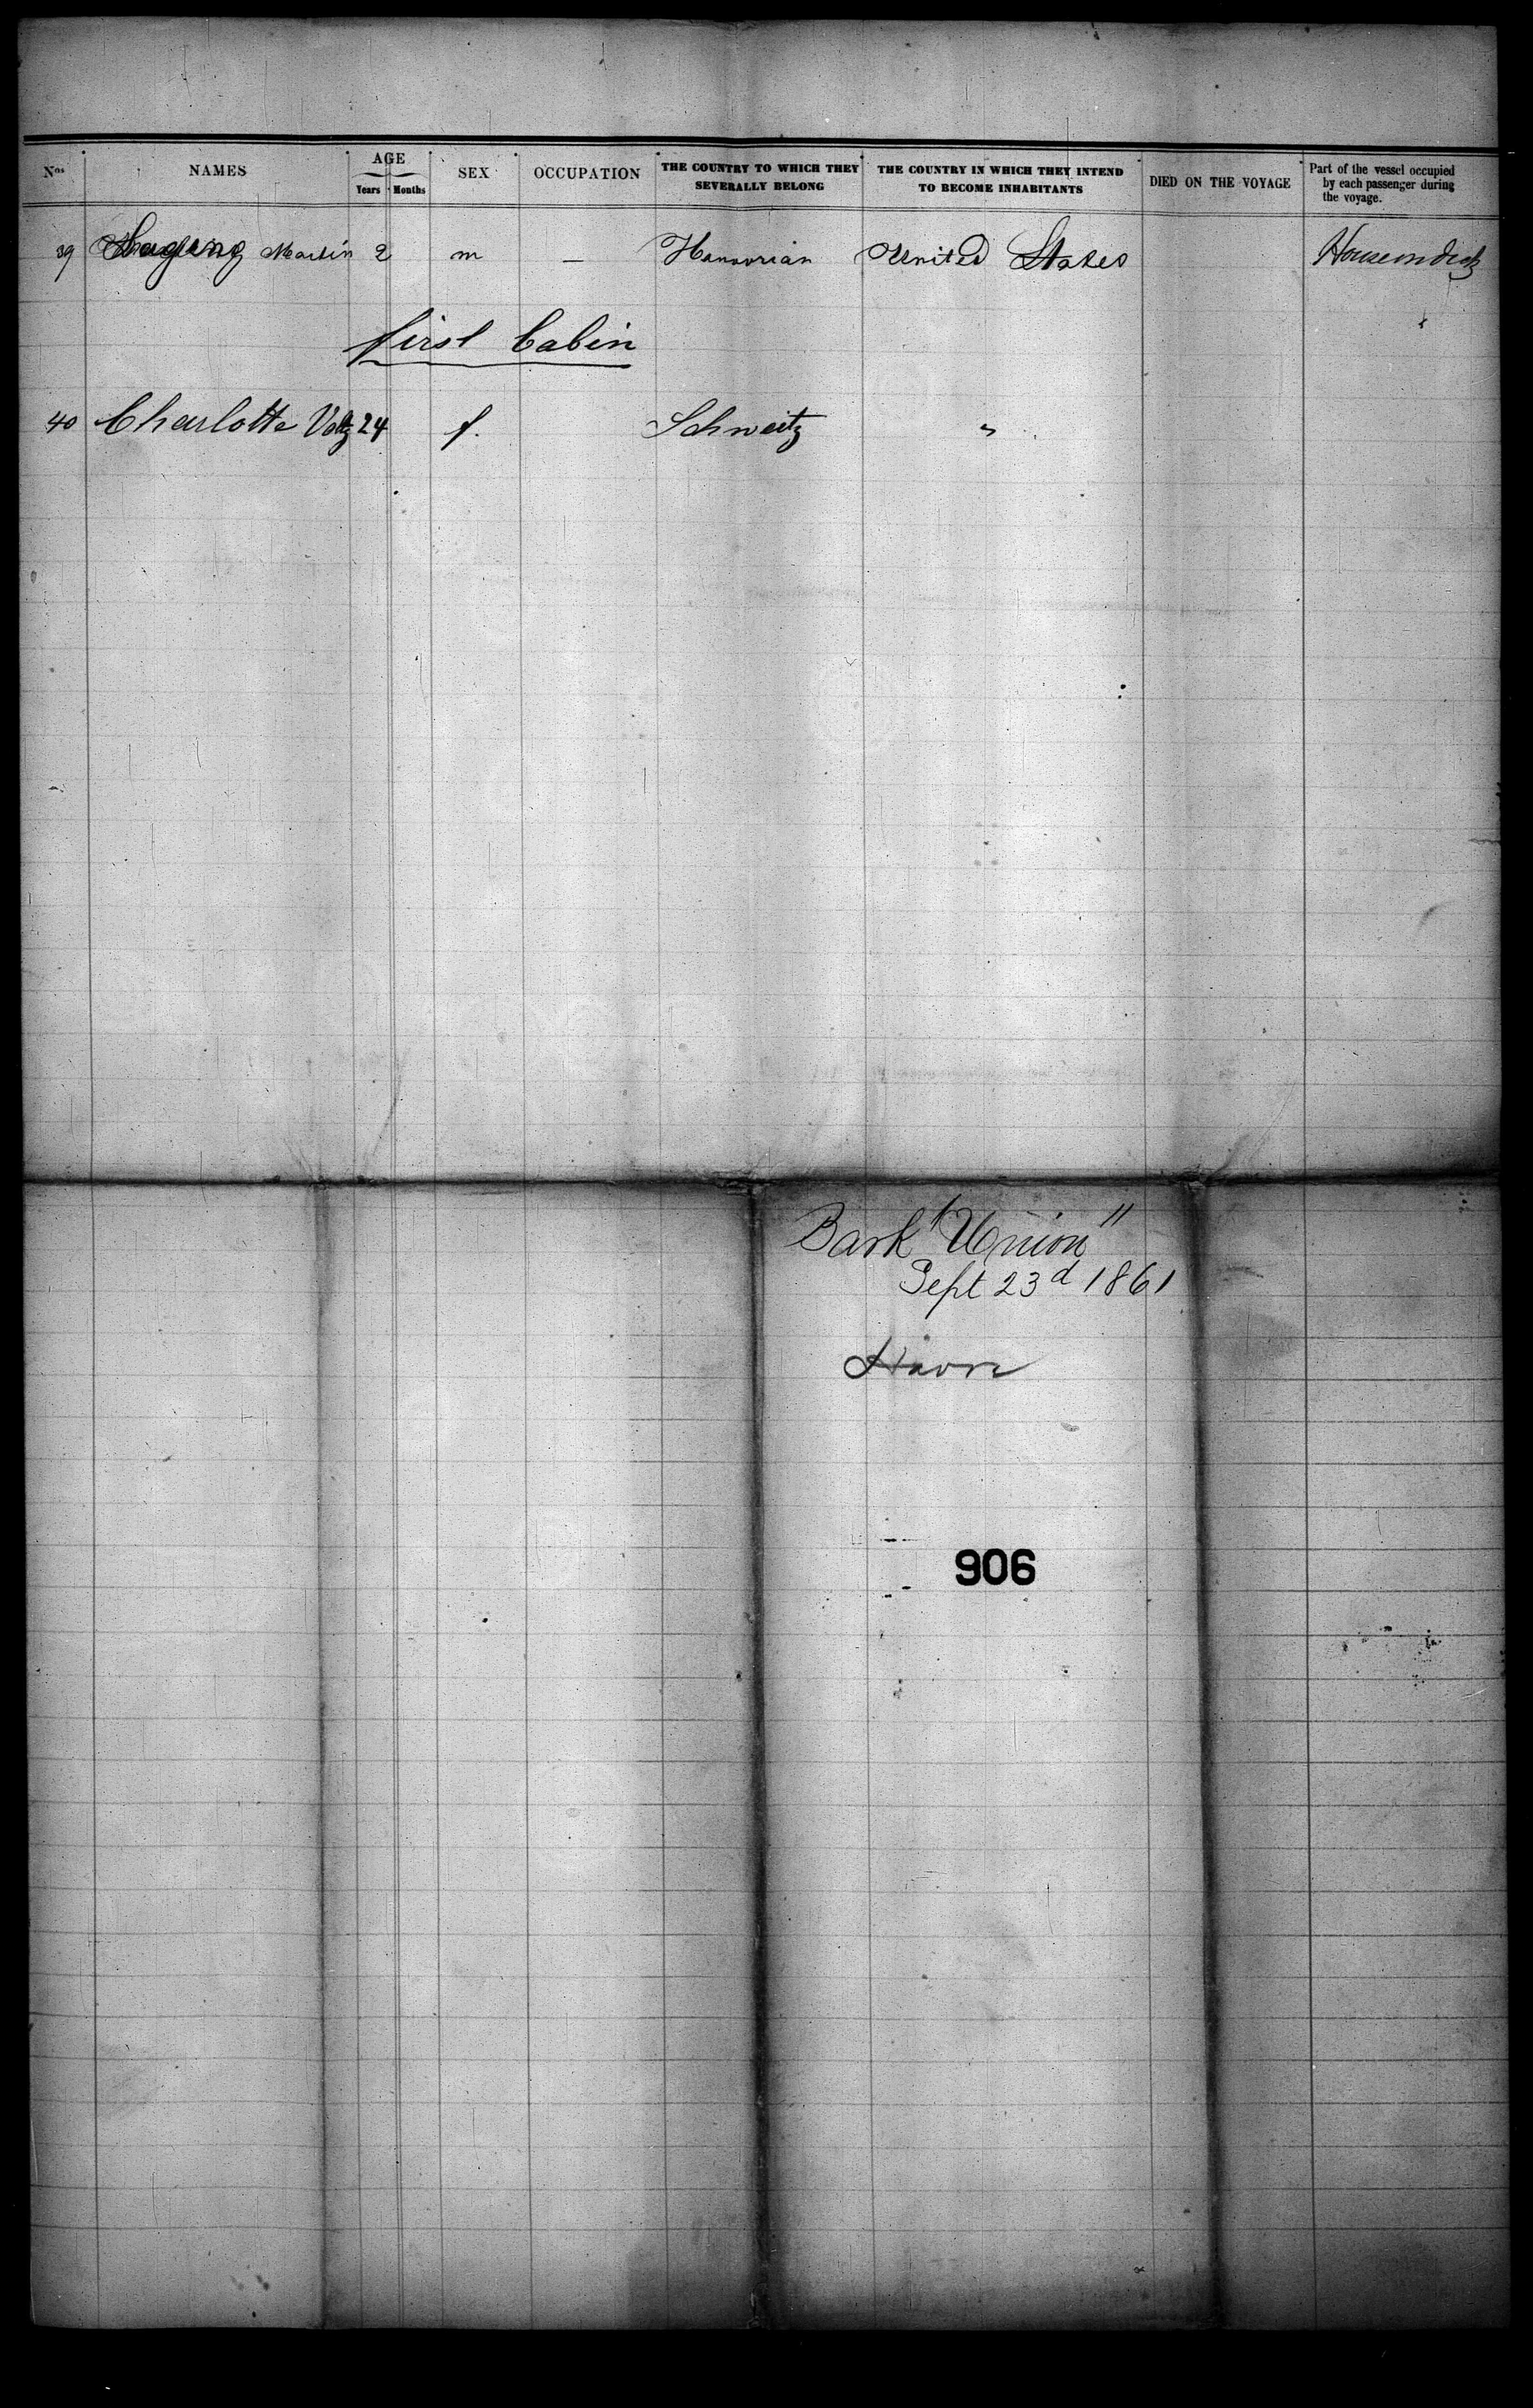 Nos NAMES AGE Years Months SEX OCCUPATION THE COUNTRY TO WHICH THEY SEVERALLY BELONG THE COUNTRY IN WHICH THEY INTEND TO BECOME INHABITANTS DIED ON THE VOYAGE Part of the vessel occupied by each passenger during the voyage.
39 Martin 2 m — United States House on deck
first Cabin
40 Charlotte Voltz 24 f. Schweitz "
Bark "Union"
Sept 23d 1861
Havre
906